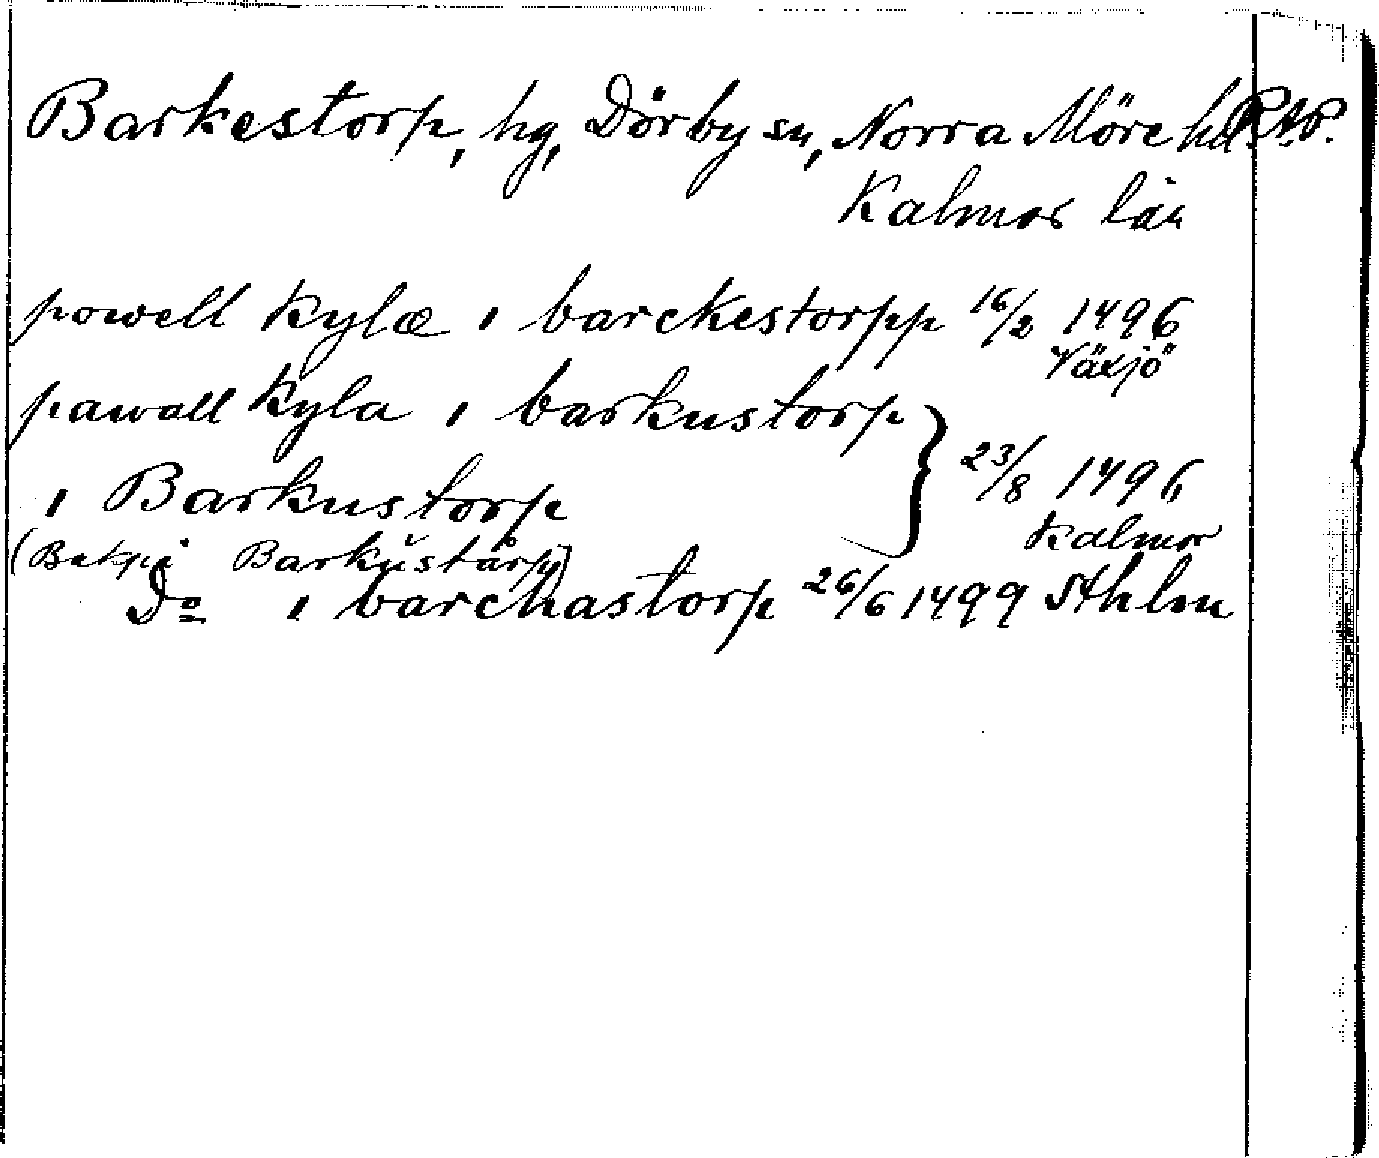 Barkestorp, hg, Dörby sn, Norra Möre hd R.A.P.
Kalmar län
powell kylæ i barckestorpp 16/2 1496
Växjö
pawall kyla i barkustorp
i Barkustorp } 23/8 1496
Kalmar
(Bakpå Barkŭstårp)
Do i barchastorp 26/6 1499 Sthlm